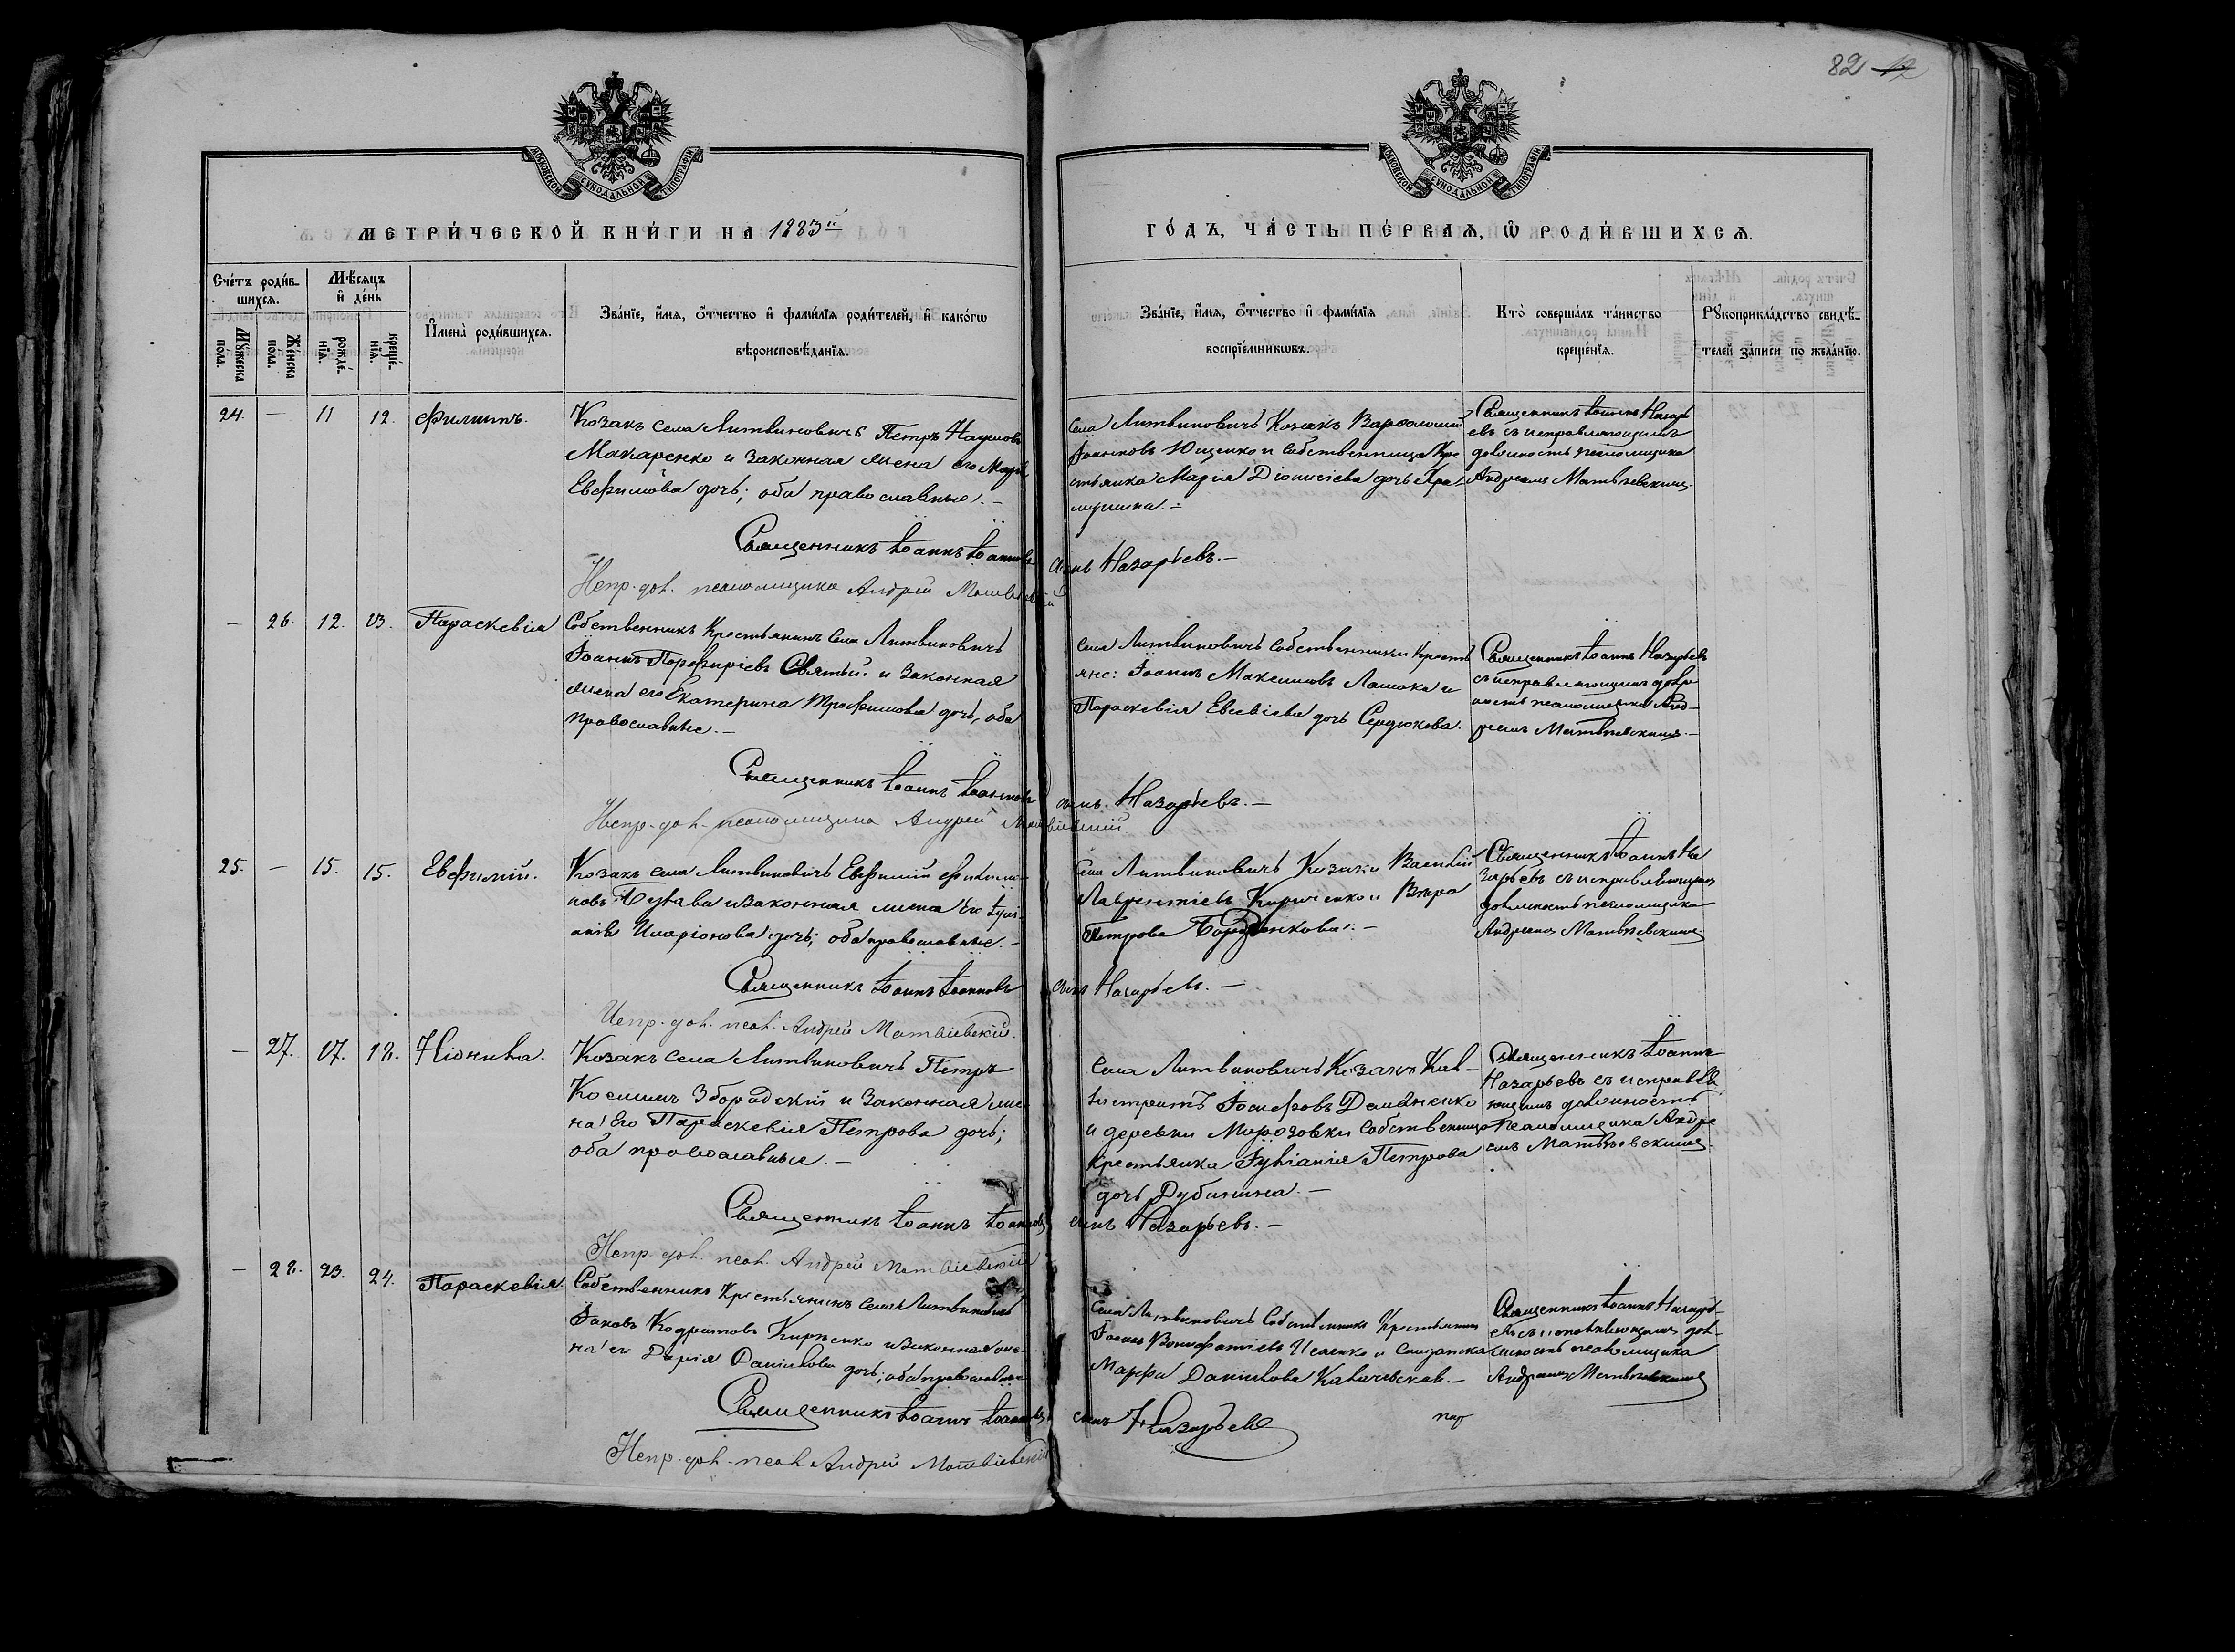 82 12
МОСКОВСКОЙ СѴНОДАЛЬНОЙ ТИПОГРАФІИ
МОСКОВСКОЙ СѴНОДАЛЬНОЙ ТИПОГРАФІИ
МЕТРИ́ЧЕСКОЙ КНИ́ГИ НА 1883й
ГО́ДЪ, ЧА́СТЬ ПЕ́РВАѦ, Ѡ РОДИ́ВШИХСѦ.
Сче́тъ роди́в-
шихсѧ.
Мꙋ́жеска
по́ла.
Же́нска
по́ла.
Мѣ́сѧцъ
и҆ де́нь
рожде́-
нїѧ.
креще́-
нїѧ.
И҆мена̀ роди́вшихсѧ.
Зва́нїе, и҆́мѧ, ѻ҆́тчество и҆ фами́лїѧ роди́телей, и҆ како́гѡ
вѣроисповѣ́данїѧ.
Зва́нїе, и҆́мѧ, ѻ҆́тчество и҆ фами́лїѧ
воспрїе́мникѡвъ.
Кто̀ соверша́лъ та́инство
креще́нїѧ.
Рꙋкоприкла́дство свидѣ́-
телей за́писи по жела́нїю.
24. — 11 12. Филиппъ.
Козакъ села Литвиновичъ Петръ Наумовъ
Макаренко и законная жена его Марія
Евфимова дочь; оба православные. —
Села Литвиновичъ Козакъ Варфоломей
Іоанновъ Ющенко и собственница Кре
стьянка Марія Діонисіева дочь Хра-
Священникъ Іоаннъ Назарь
евъ съ исправляющимъ
должность псаломщика
Андреемъ Матвѣевскимъ.
Священникъ Іоаннъ Іоанновъ сынъ Назарьевъ. —
Испр. дол. псаломщика Андрей Матвіевскій
— 26. 12. 13. Параскевія
Собственникъ Крестьянинъ села Литвиновичъ
Іоаннъ Порфиріевъ Святый и законная
жена его Екатерина Трофимова дочь, оба
православные. —
Села Литвиновичъ собственники Кресть
яне: Іоаннъ Максимовъ Лашока и
Параскевія Евсевіева дочь Сердюкова.
Священникъ Іоаннъ Назарьевъ
съ исправляющимъ долж
ность псаломщика Анд-
реемъ Матвѣевскимъ. —
Священникъ Іоаннъ Іоанновъ сынъ Назарьевъ. —
Испр. дол. псаломщика Андрей Матвіевскій
25. — 15. 15. Евфимій.
Козакъ села Литвиновичъ Евфимій Филимо-
новъ Булава и законная жена его Іулі-
анія Иларіонова дочь; оба православные. —
Села Литвиновичъ Козаки Василій
Лаврентіевъ Кириченко и Вѣра
Петрова
Священникъ Іоаннъ На
зарьевъ съ исправляющимъ
должность псаломщика
Андреемъ Матвѣевскимъ.
Священникъ Іоаннъ Іоанновъ сынъ Назарьевъ. —
Испр. дол. псал. Андрей Матвіевскій.
— 27. 17. 18. Ніонила.
Козакъ села Литвиновичъ Петръ
Косминъ Зборадскій и законная же-
на его Параскевія Петрова дочь;
оба православные. —
Села Литвиновичъ Козакъ Кал-
листратъ Іосифовъ Демяненко
и деревни Морозовки собственница
Крестьянка Іуліанія Петрова
дочь Дубинина. —
Священникъ Іоаннъ
Назарьевъ съ исправля
ющимъ должность
псаломщика Андре
емъ Матвѣевскимъ.
Священникъ Іоаннъ Іоанновъ сынъ Назарьевъ. —
Испр. дол. псал. Андрей Матвіевскій
— 28. 23. 24. Параскевія.
Собственникъ Крестьянинъ села Литвиновичъ
Іаковъ Кодратовъ Кириенко и законная же-
на его Дарія Даніилова дочь; оба православные
Села Литвиновичъ Собственникъ Крестьянинъ
Іоаннъ Вонифатіевъ Исаенко и Солдатка
Марфа Даніилова
Священникъ Іоаннъ Назарь-
евъ съ исправляющимъ дол-
жность псаломщика
Андреемъ Матвѣевскимъ
Священникъ Іоаннъ Іоанновъ сынъ Назарьевъ
Испр. дол. псал. Андрей Матвіевскій